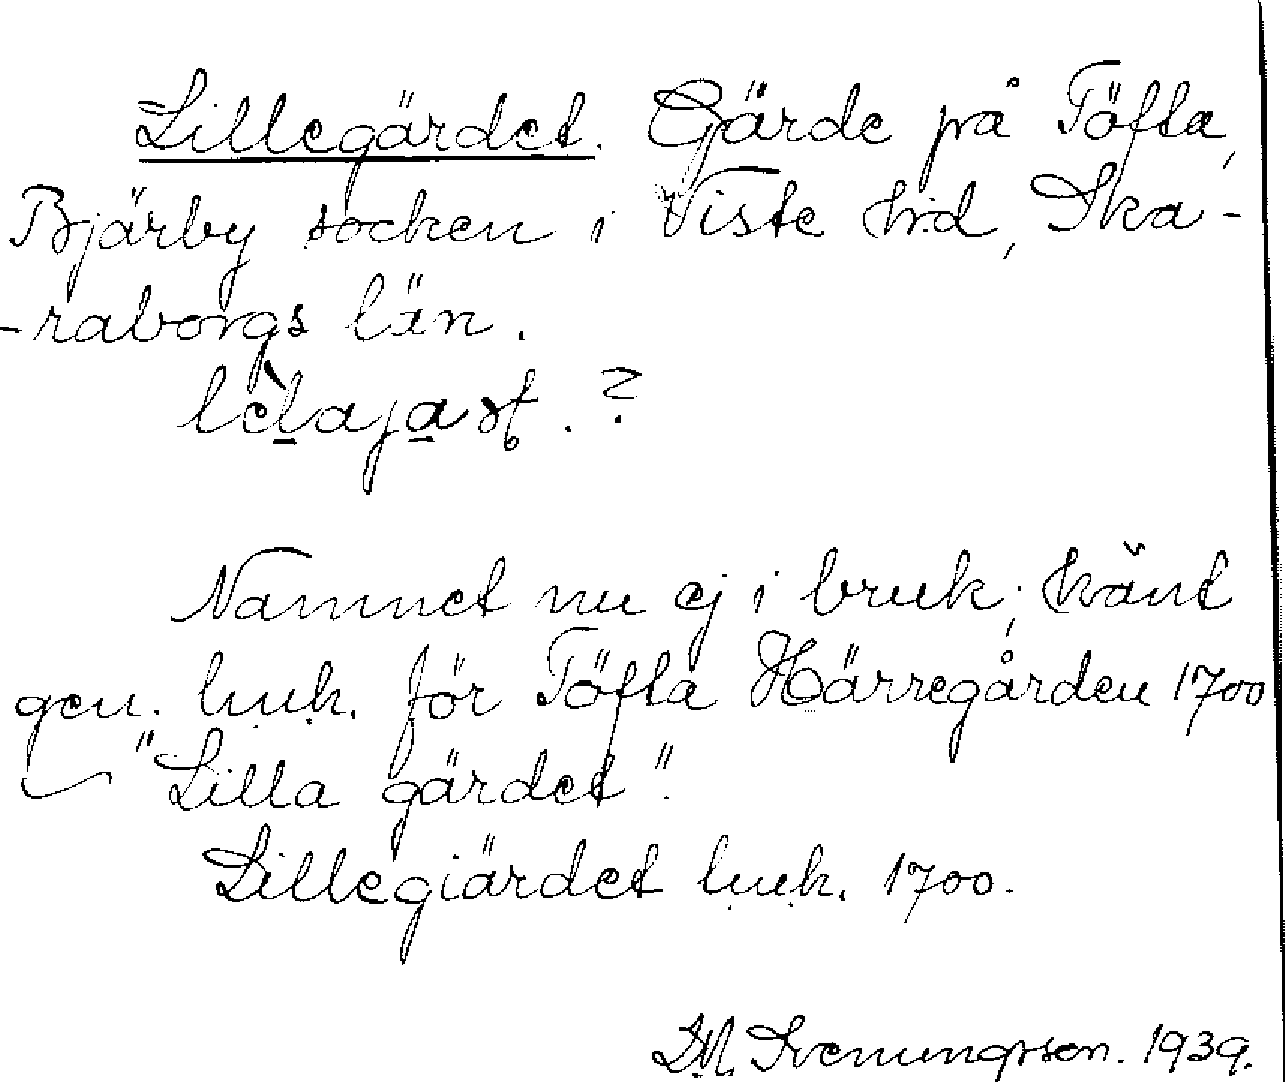 Lillegärdet. Gärde på Töfta,
Bjärby socken i Viste hrd, Ska-
-raborgs län.
Namnet nu ej i bruk; känt
gen. luuk. för Töfta Härregården 1700
"Lilla gärdet".
Lillegiärdet luuk. 1700.
D.M. Svenungsson. 1939.